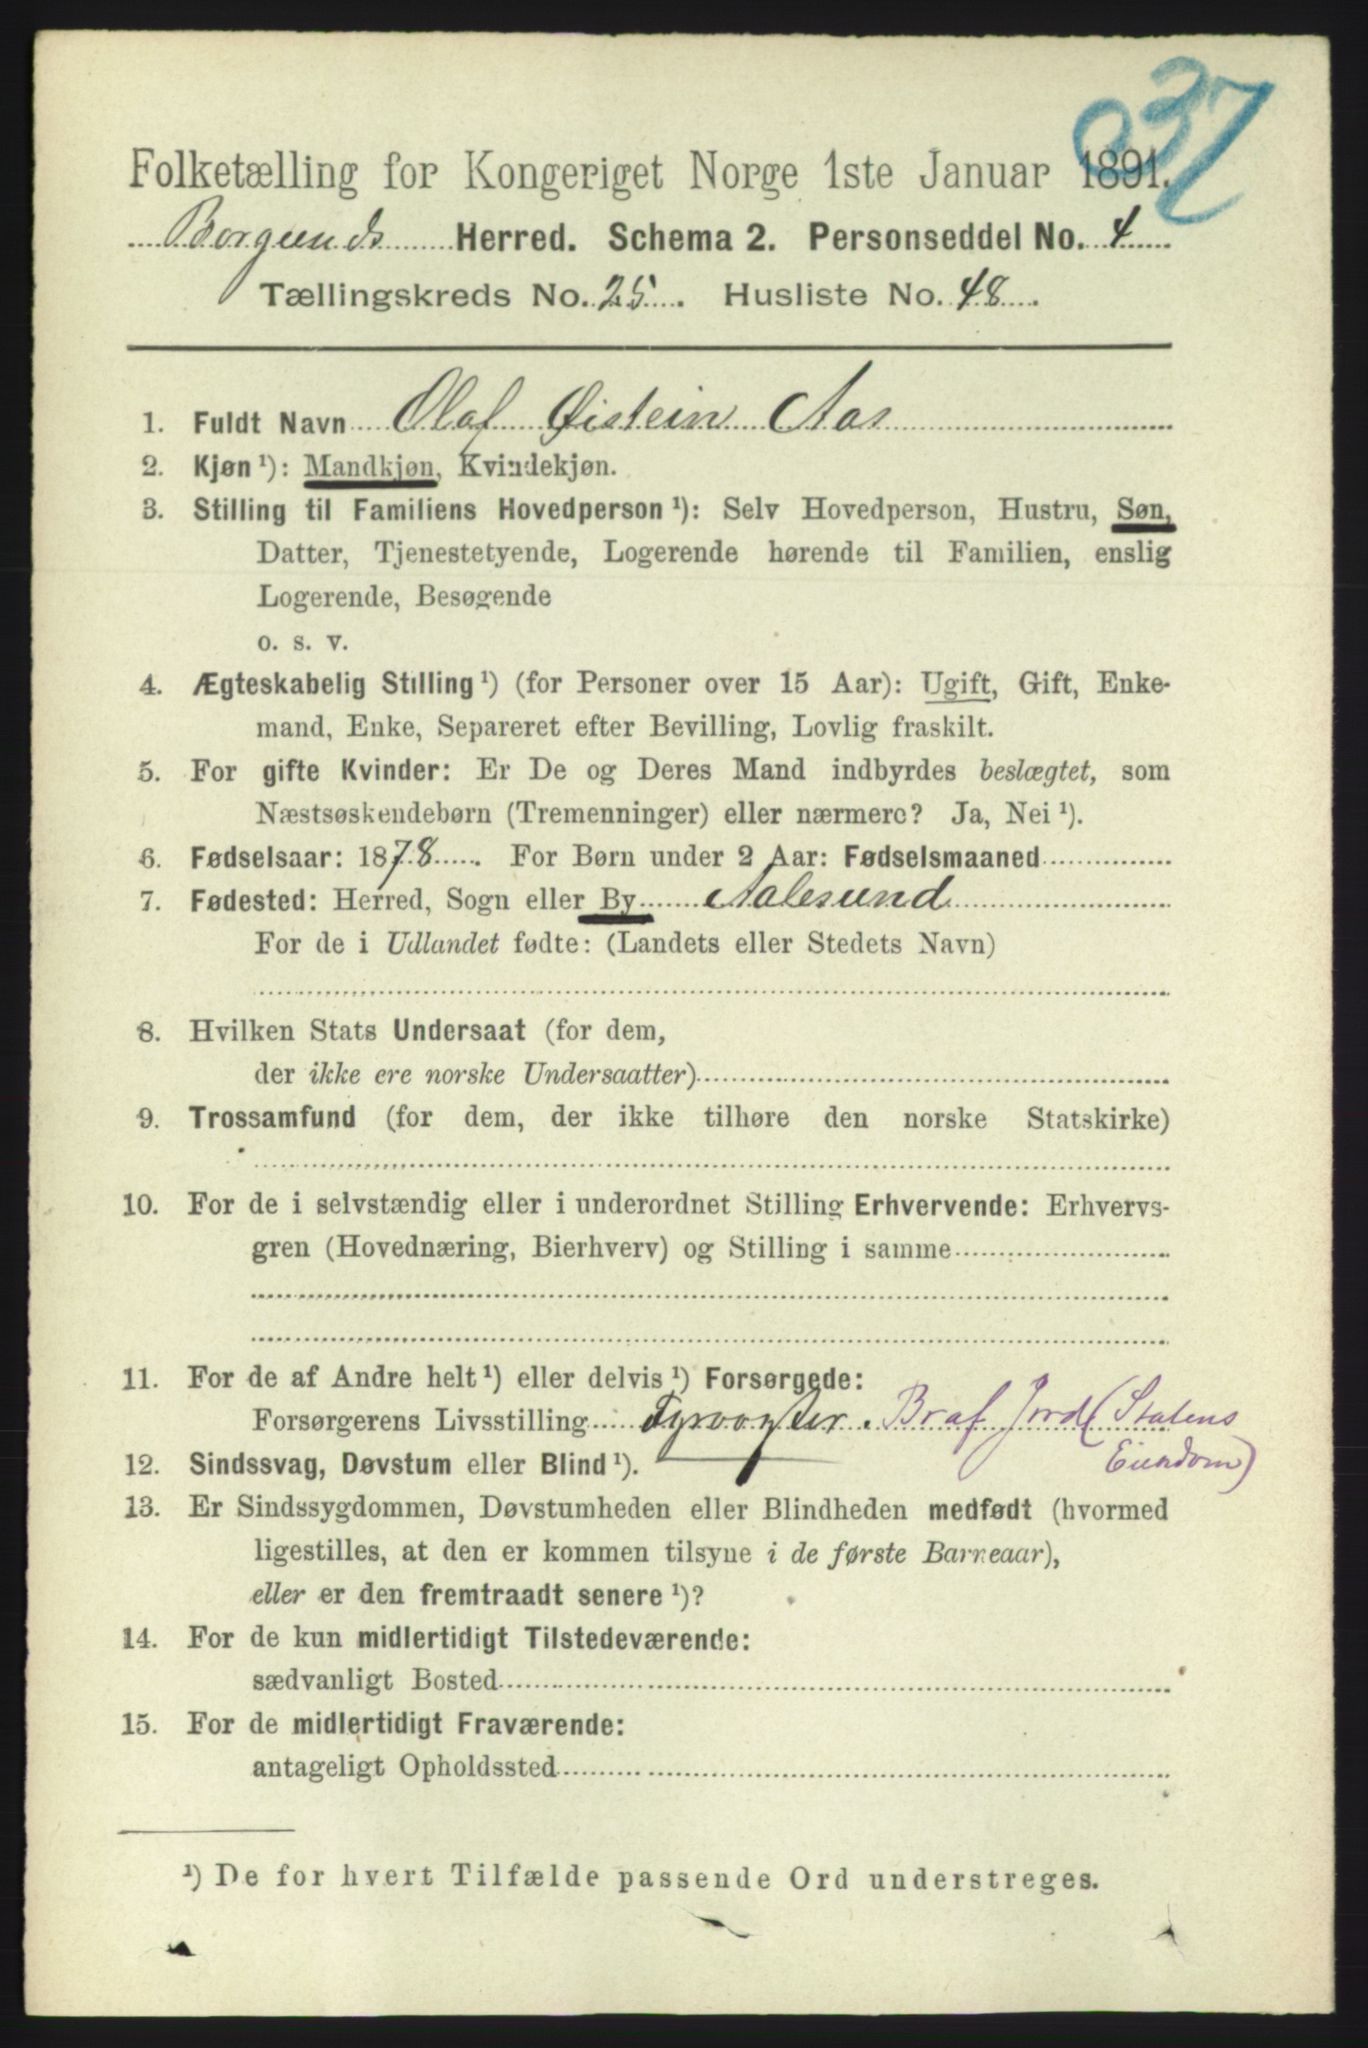 937
Folketælling for Kongeriget Norge 1ste Januar 1891.
Borgunds Herred. Schema 2. Personseddel No. 4
Tællingskreds No. 25. Husliste No. 48.
1. Fuldt Navn Olaf Øistein Aas
2. Kjøn ¹): Mandkjøn, Kvindekjøn.
3. Stilling til Familiens Hovedperson ¹): Selv Hovedperson, Hustru, Søn,
Datter, Tjenestetyende, Logerende hørende til Familien, enslig
Logerende, Besøgende
o. s. v.
4. Ægteskabelig Stilling ¹) (for Personer over 15 Aar): Ugift, Gift, Enke-
mand, Enke, Separeret efter Bevilling, Lovlig fraskilt.
5. For gifte Kvinder: Er De og Deres Mand indbyrdes beslægtet, som
Næstsøskendebørn (Tremenninger) eller nærmere? Ja, Nei ¹).
6. Fødselsaar: 1878. For Børn under 2 Aar: Fødselsmaaned
7. Fødested: Herred, Sogn eller By Aalesund
For de i Udlandet fødte: (Landets eller Stedets Navn)
8. Hvilken Stats Undersaat (for dem,
der ikke ere norske Undersaatter)
9. Trossamfund (for dem, der ikke tilhøre den norske Statskirke)
10. For de i selvstændig eller i underordnet Stilling Erhvervende: Erhvervs-
gren (Hovednæring, Bierhverv) og Stilling i samme
11. For de af Andre helt ¹) eller delvis ¹) Forsørgede:
Forsørgerens Livsstilling Fyrvogter. Br af Jord (Statens
Eiendom)
12. Sindssvag, Døvstum eller Blind ¹).
13. Er Sindssygdommen, Døvstumheden eller Blindheden medfødt (hvormed
ligestilles, at den er kommen tilsyne i de første Barneaar),
eller er den fremtraadt senere ¹)?
14. For de kun midlertidigt Tilstedeværende:
sædvanligt Bosted
15. For de midlertidigt Fraværende:
antageligt Opholdssted
¹) De for hvert Tilfælde passende Ord understreges.